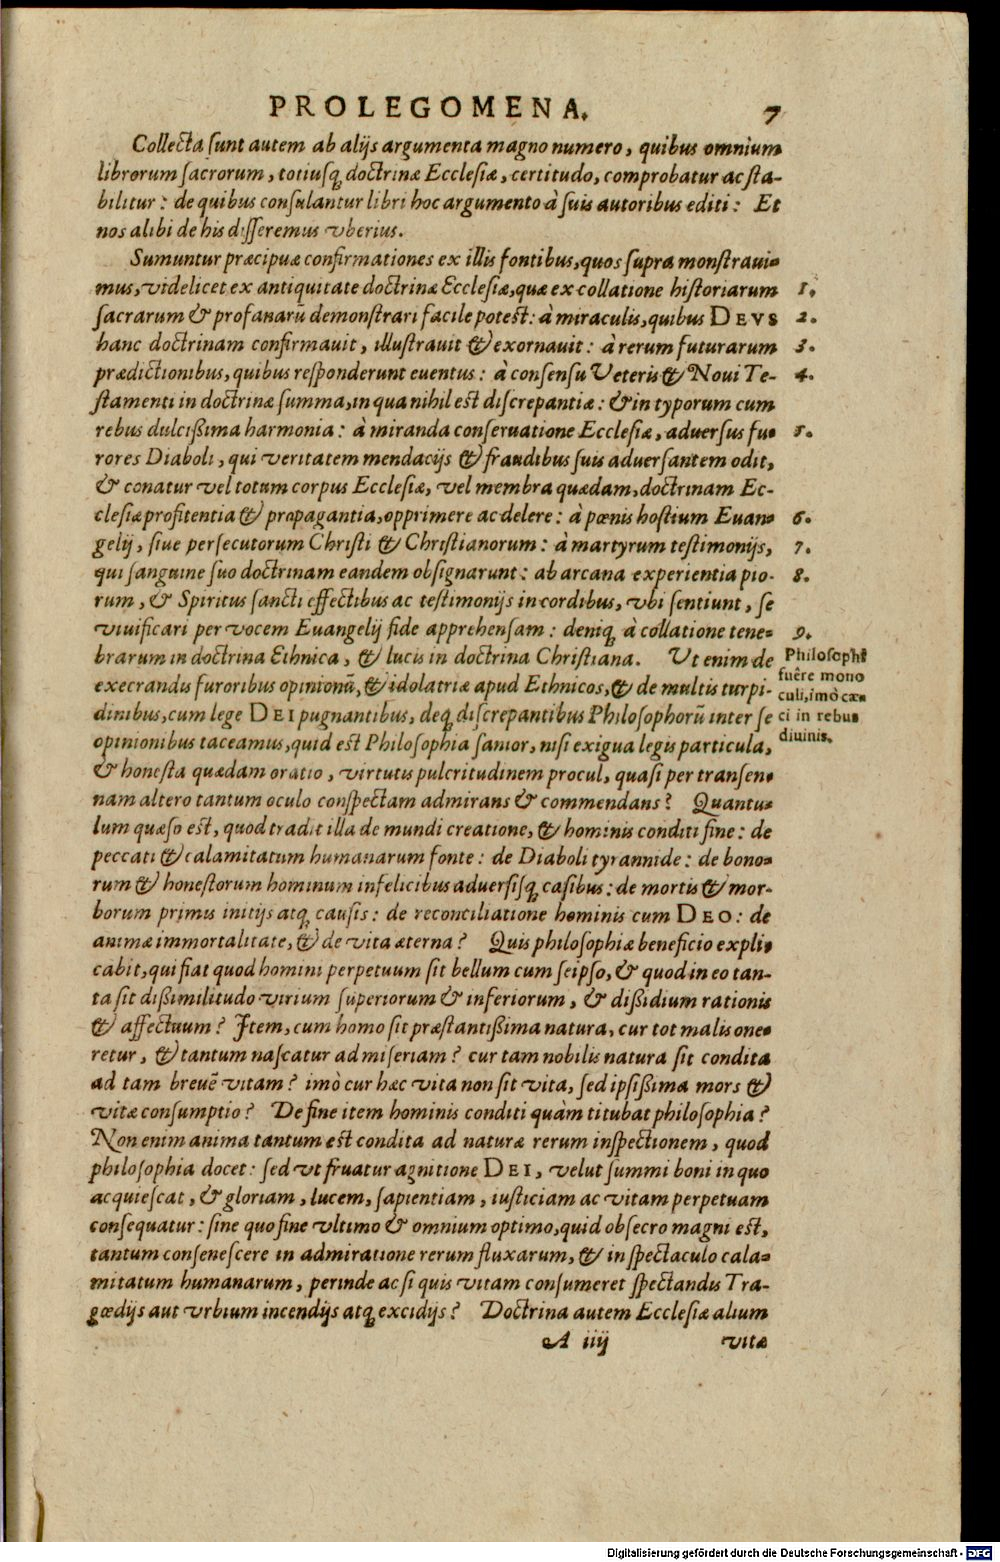 PROLEGOMENA. 7
Collecta sunt autem ab alijs argumenta magno numero, quibus omnium
librorum sacrorum, totiusq́; doctrinæ Ecclesiæ, certitudo, comprobatur ac sta-
bilitur: de quibus consulantur libri hoc argumento à suis autoribus editi: Et
nos alibi de his disseremus vberius.
Sumuntur præcipuæ confirmationes ex illis fontibus, quos supra monstraui-
mus, videlicet ex antiquitate doctrinæ Ecclesiæ, quæ ex collatione historiarum 1.
sacrarum & profanarū demonstrari facile potest: à miraculis, quibus DEVS 2.
hanc doctrinam confirmauit, illustrauit & exornauit: à rerum futurarum 3.
prædictionibus, quibus responderunt euentus: à consensu Veteris & Noui Te- 4.
stamenti in doctrinæ summa, in qua nihil est discrepantiæ: & in typorum cum
rebus dulcißima harmonia: à miranda conseruatione Ecclesiæ, aduersus fu- 5.
rores Diaboli, qui veritatem mendacijs & fraudibus suis aduersantem odit,
& conatur vel totum corpus Ecclesiæ, vel membra quædam, doctrinam Ec-
clesiæ profitentia & propagantia, opprimere ac delere: à pœnis hostium Euan- 6.
gelij, siue persecutorum Christi & Christianorum: à martyrum testimonijs, 7.
qui sanguine suo doctrinam eandem obsignarunt: ab arcana experientia pio- 8.
rum, & Spiritus sancti effectibus ac testimonijs in cordibus, vbi sentiunt, se
viuificari per vocem Euangelij fide apprehensam: deniq; à collatione tene- 9.
brarum in doctrina Ethnica, & lucis in doctrina Christiana. Ut enim de
execrandis furoribus opinionū, & idolatriæ apud Ethnicos, & de multis turpi-
dinibus, cum lege DEI pugnantibus, deq́; discrepantibus Philosophorū inter se
opinionibus taceamus, quid est Philosophia sanior, nisi exigua legis particula,
& honesta quædam oratio, virtutis pulcritudinem procul, quasi per transen-
nam altero tantum oculo conspectam admirans & commendans? Quantu-
lum quæso est, quod tradit illa de mundi creatione, & hominis conditi fine: de
peccati & calamitatum humanarum fonte: de Diaboli tyrannide: de bono-
rum & honestorum hominum infelicibus aduersisq́; casibus: de mortis & mor-
borum primis initijs atq; causis: de reconciliatione hominis cum DEO: de
animæ immortalitate, & de vita æterna? Quis philosophiæ beneficio expli-
cabit, qui fiat quod homini perpetuum sit bellum cum seipso, & quod in eo tan-
ta sit dißimilitudo virium superiorum & inferiorum, & dißidium rationis
& affectuum? Item, cum homo sit præstantißima natura, cur tot malis one-
retur, & tantum nascatur ad miseriam? cur tam nobilis natura sit condita
ad tam breuē vitam? imò cur hæc vita non sit vita, sed ipsißima mors &
vitæ consumptio? De fine item hominis conditi quàm titubat philosophia?
Non enim anima tantum est condita ad naturæ rerum inspectionem, quod
philosophia docet: sed vt fruatur agnitione DEI, velut summi boni in quo
acquiescat, & gloriam, lucem, sapientiam, iusticiam ac vitam perpetuam
consequatur: sine quo fine vltimo & omnium optimo, quid obsecro magni est,
tantum consenescere in admiratione rerum fluxarum, & in spectaculo cala-
mitatum humanarum, perinde ac si quis vitam consumeret spectandis Tra-
gœdijs aut vrbium incendijs atq; excidijs? Doctrina autem Ecclesiæ alium
A iiij vitæ
Philosophi
fuêre mono
culi, imò cæ-
ci in rebus
diuinis.
Digitalisierung gefördert durch die Deutsche Forschungsgemeinschaft - DFG